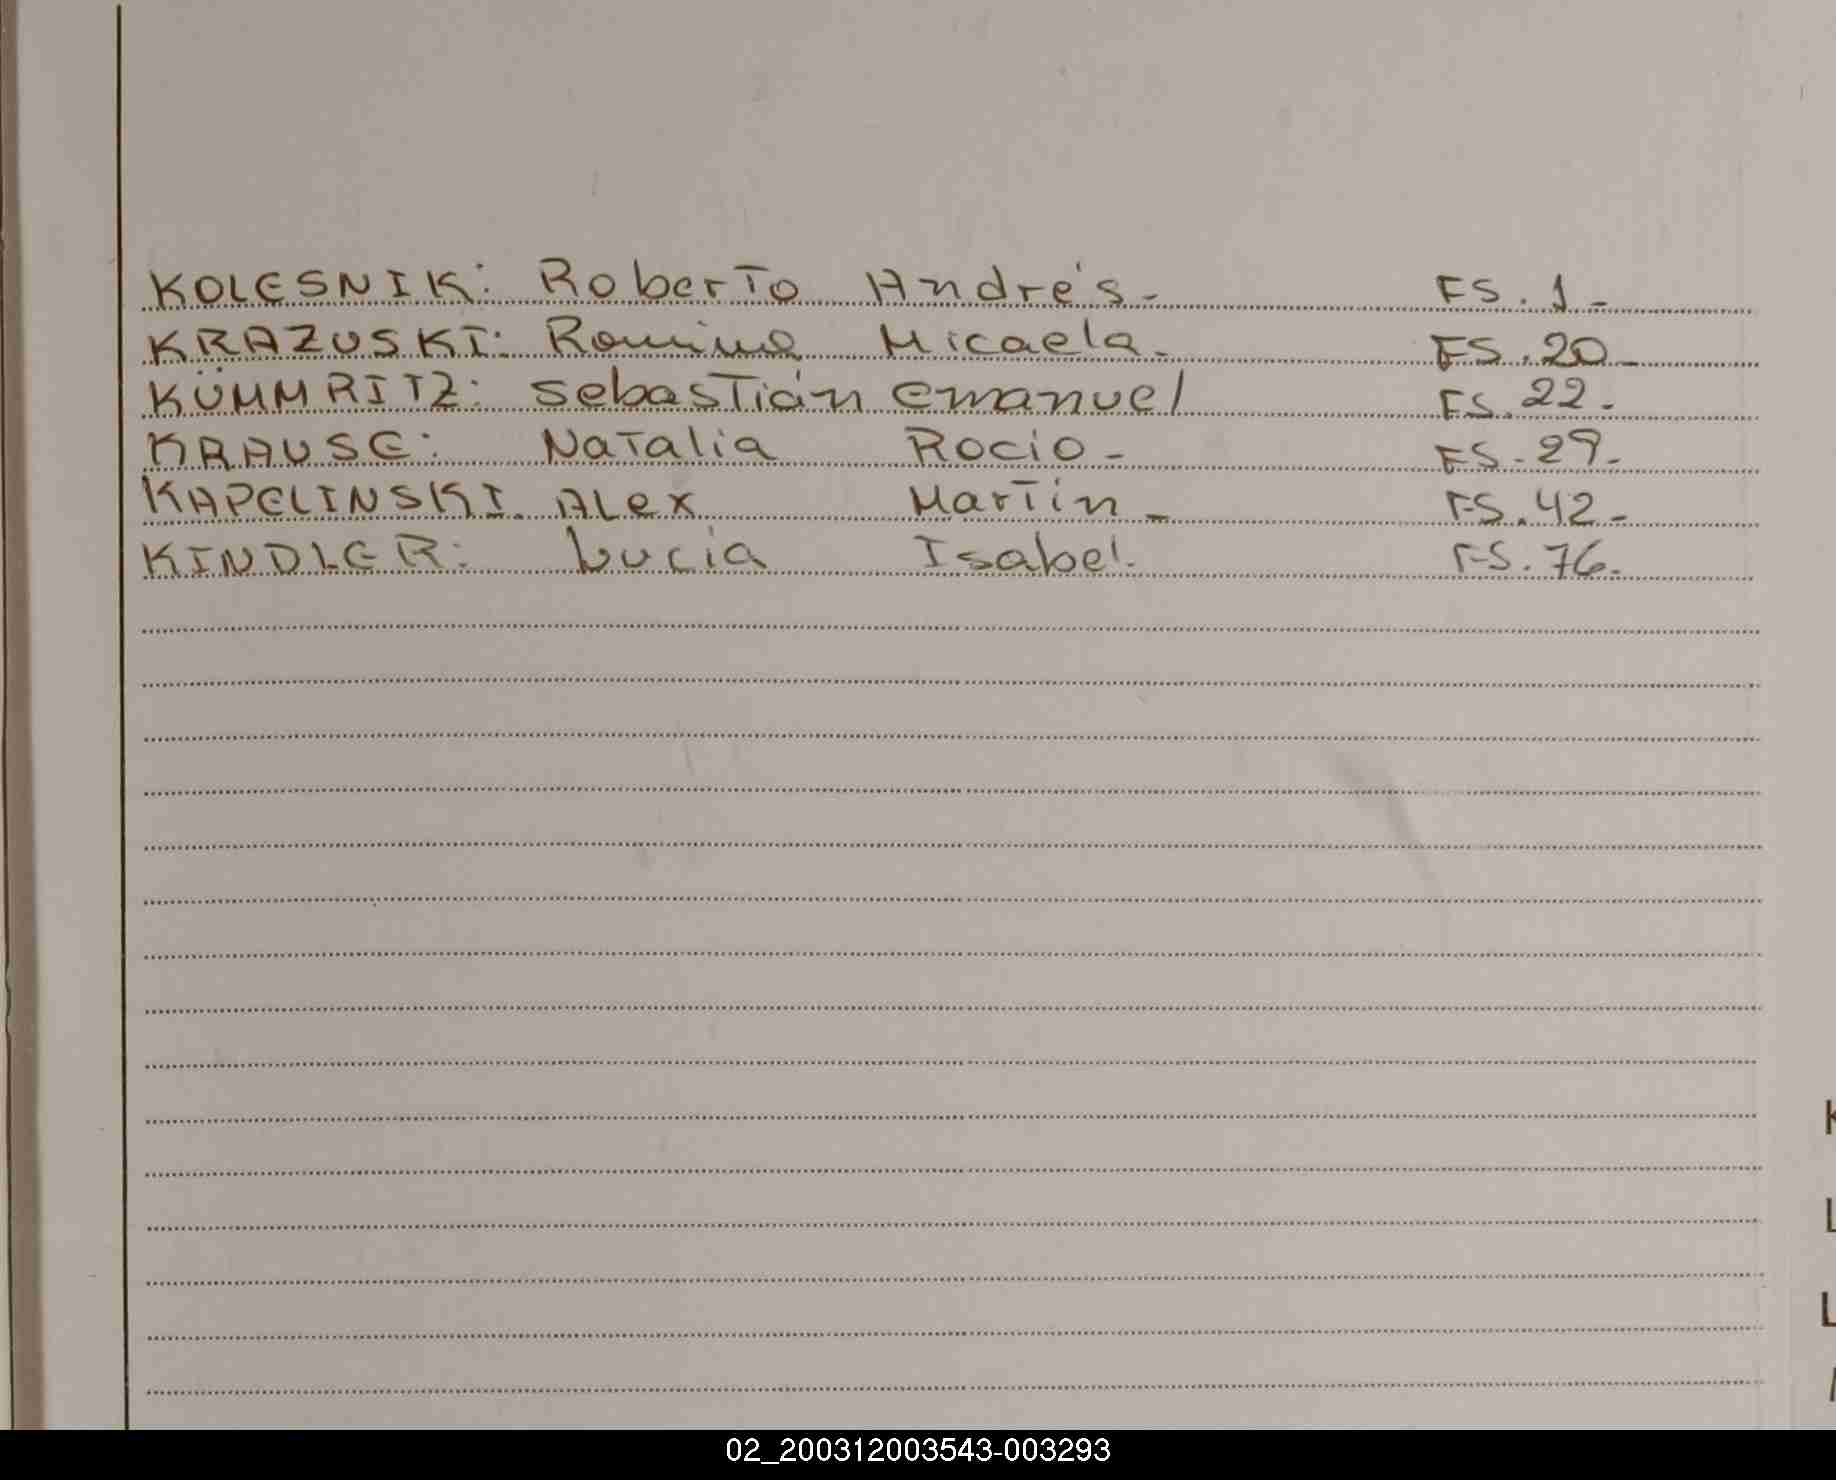 KOLESNIK: Roberto Andrés- FS. 1-
KRAZUSKI: Romina Micaela- FS. 20-
KÜMMRITZ: Sebastián Emanuel FS. 22-
KRAUSE: Natalia Rocio- FS-29-
KAPELINSKI. Alex Martin- FS. 42-
KINDLER: Lucia Isabel. FS. 76-
K
L
L
02_200312003543-003293